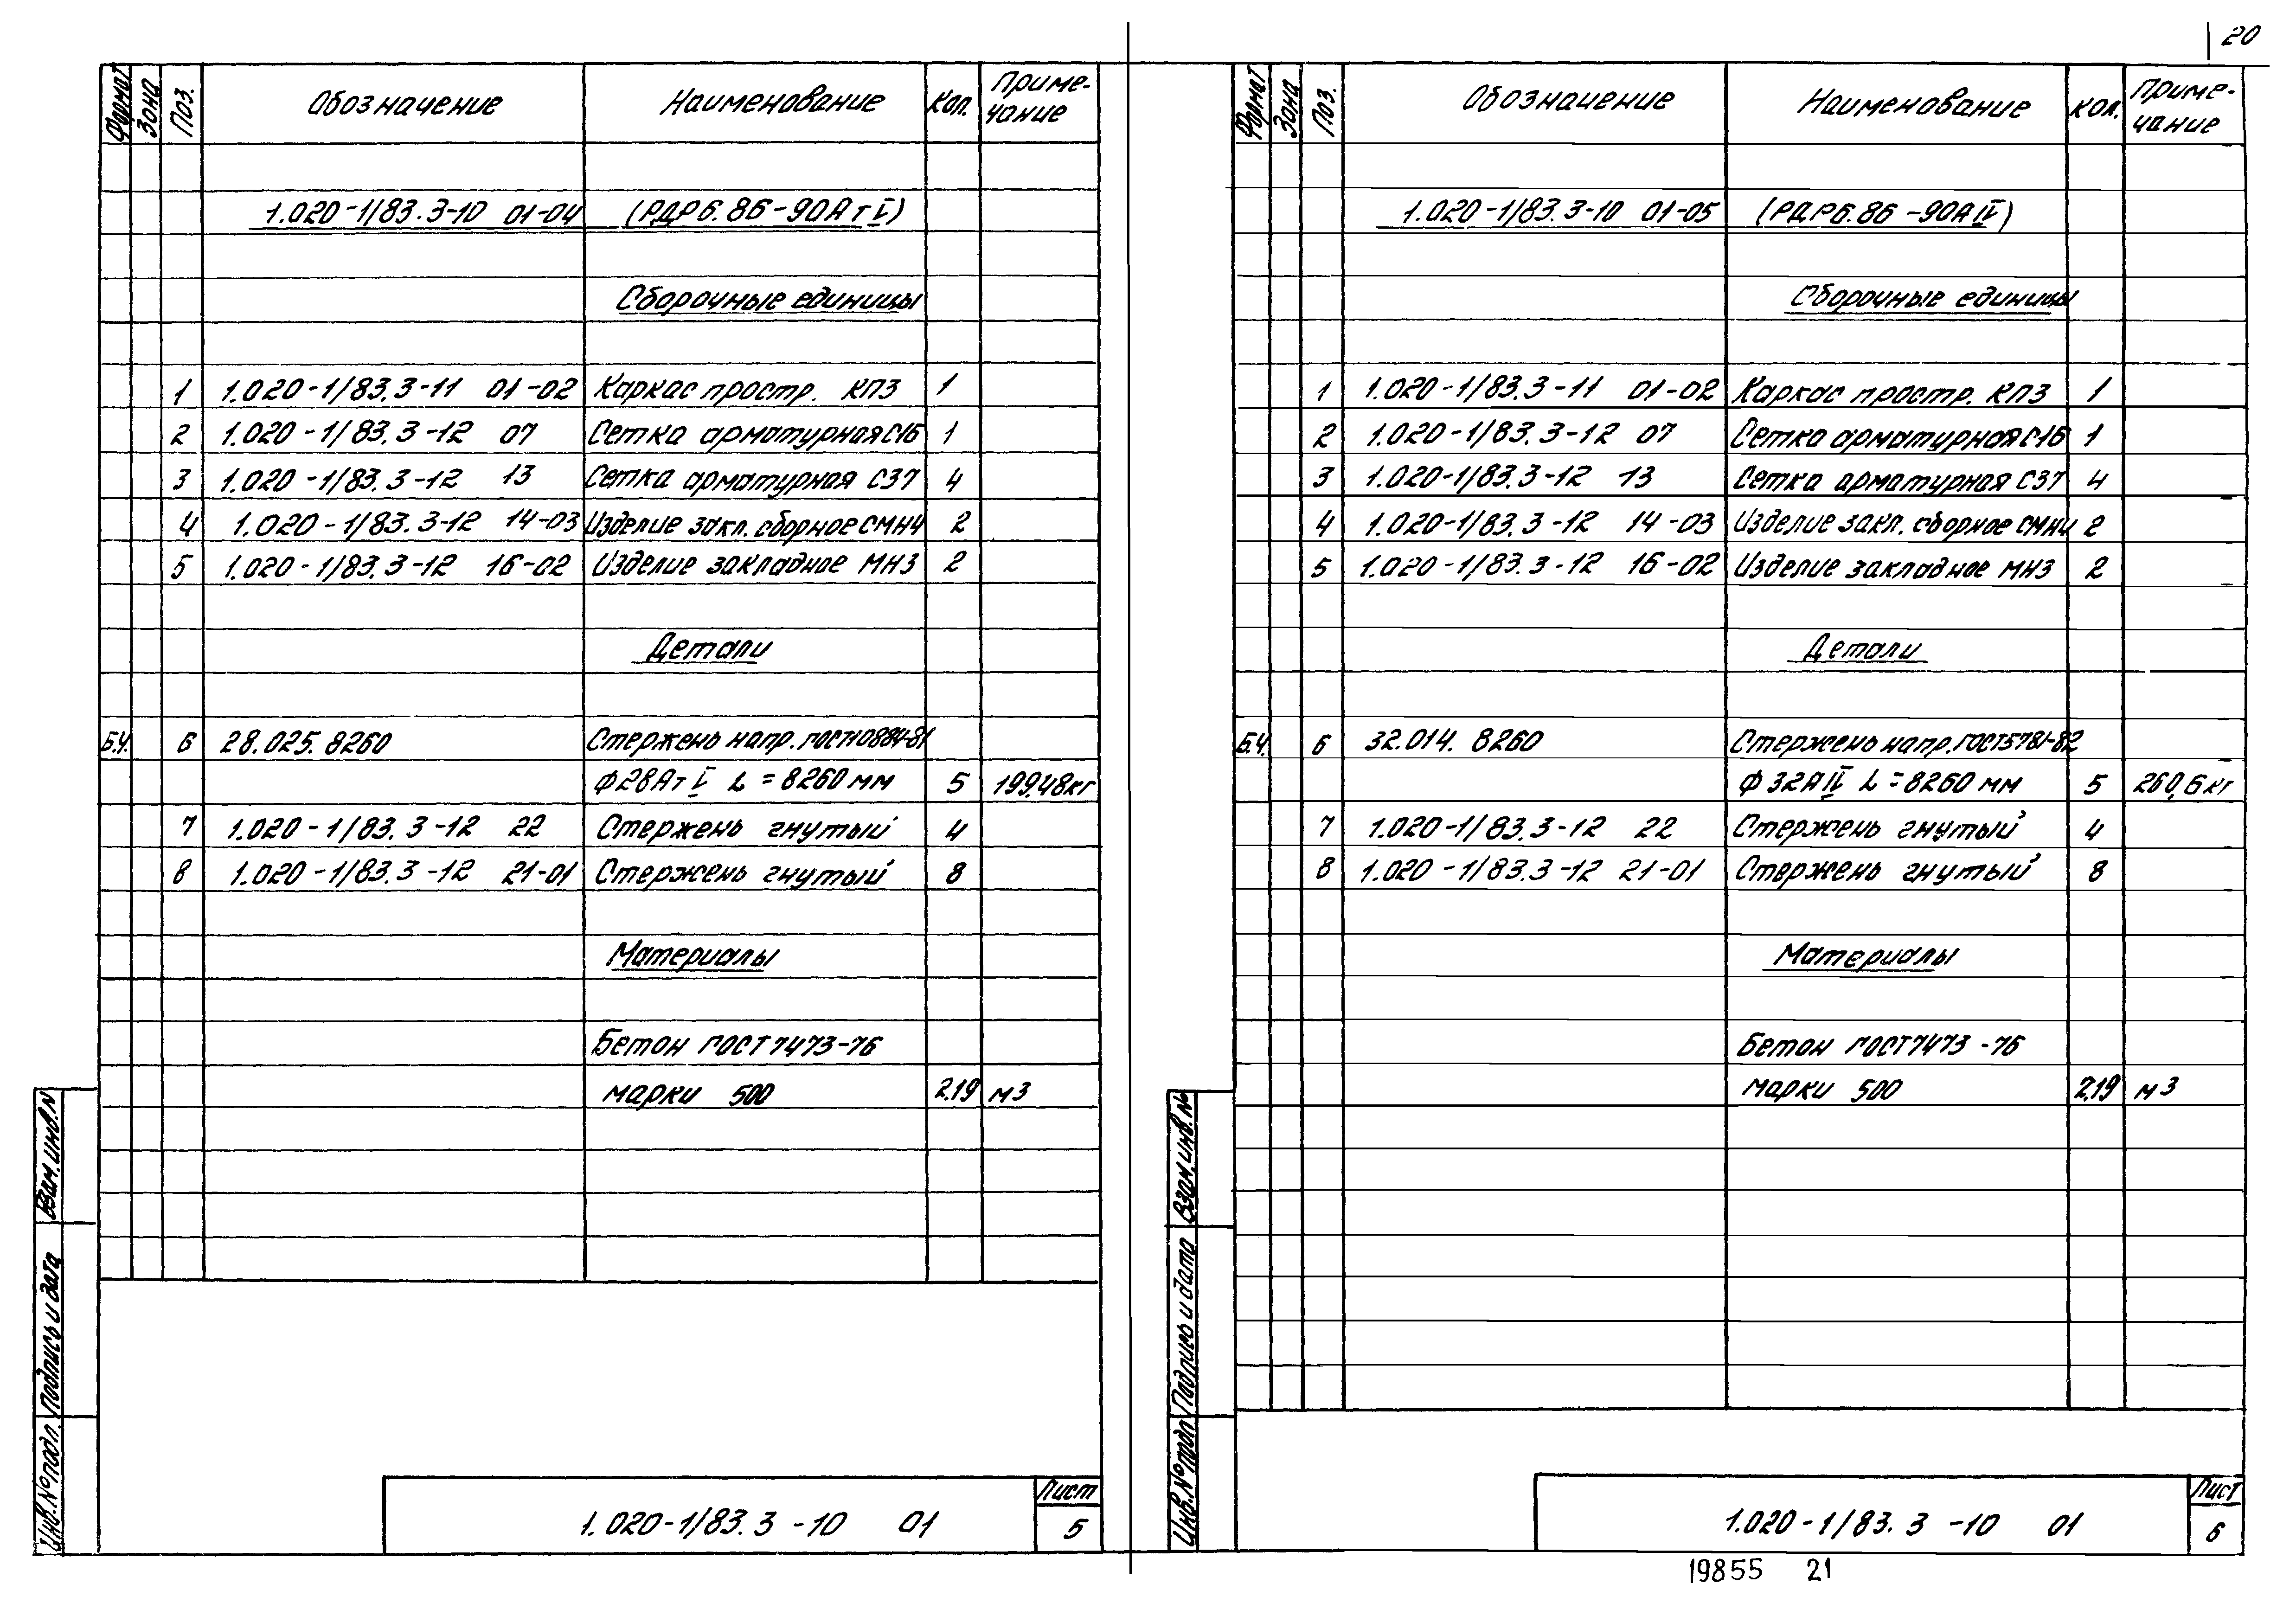 20
Формат Зона Поз. Обозначение Наименование Кол. Приме-
чание
1.020-1/83.3-10 01-04 (РДР6.86-90АтV)
Сборочные единицы
1 1.020-1/83.3-11 01-02 Каркас простр. КП3 1
2 1.020-1/83.3-12 07 Сетка арматурная С16 1
3 1.020-1/83.3-12 13 Сетка арматурная С37 4
4 1.020-1/83.3-12 14-03 Изделие закл. сборное СМН4 2
5 1.020-1/83.3-12 16-02 Изделие закладное МН3 2
Детали
Б.Ч. 6 28.025.8260 Стержень напр. ГОСТ10884-81
Ф28АтV L=8260мм 5 199.48кг
7 1.020-1/83.3-12 22 Стержень гнутый 4
8 1.020-1/83.3-12 21-01 Стержень гнутый 8
Материалы
Бетон ГОСТ7473-76
марки 500 2.19 м3
Взам. инв. N
Подпись и дата
Инв. № подл.
1.020-1/83.3-10 01
Лист
5
Формат Зона Поз. Обозначение Наименование Кол. Приме-
чание
1.020-1/83.3-10 01-05 (РДР6.86-90АIV)
Сборочные единицы
1 1.020-1/83.3-11 01-02 Каркас простр. КП3 1
2 1.020-1/83.3-12 07 Сетка арматурная С16 1
3 1.020-1/83.3-12 13 Сетка арматурная С37 4
4 1.020-1/83.3-12 14-03 Изделие закл. сборное СМН4 2
5 1.020-1/83.3-12 16-02 Изделие закладное МН3 2
Детали
Б.Ч. 6 32.014.8260 Стержень напр. ГОСТ5781-82
Ф32АIV L=8260мм 5 260,6кг
7 1.020-1/83.3-12 22 Стержень гнутый 4
8 1.020-1/83.3-12 21-01 Стержень гнутый 8
Материалы
Бетон ГОСТ7473-76
марки 500 2.19 м3
Взам. инв. №
Подпись и дата
Инв. № подл
1.020-1/83.3-10 01
Лист
6
19855 21